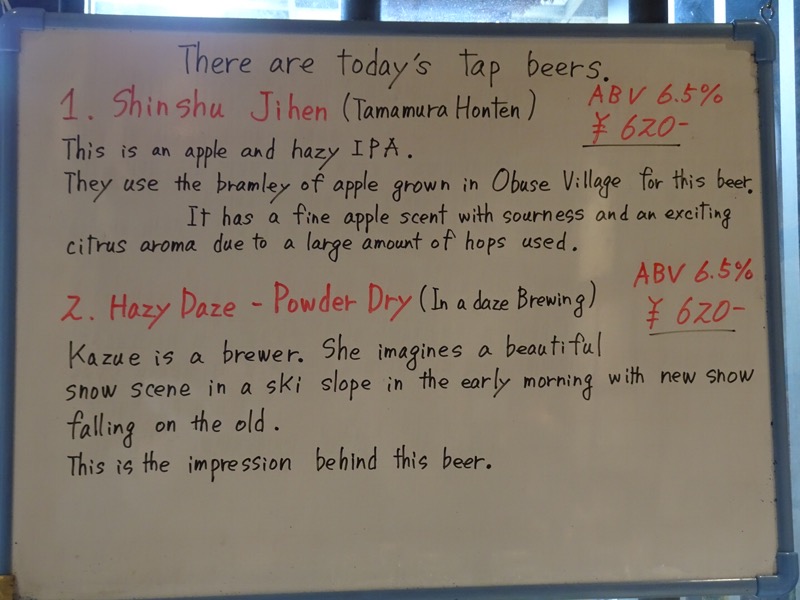 There are today's tap beers.
1. Shinshu Jihen (Tamamura Honten) ABV 6.5%
¥ 620-
This is an apple and hazy IPA.
They use the bramley of apple grown in Obuse Village for this beer.
It has a fine apple scent with sourness and an exciting
citrus aroma due to a large amount of hops used.
ABV 6.5%
2. Hazy Daze - Powder Dry (In a daze Brewing) ¥ 620-
Kazue is a brewer. She imagines a beautiful
snow scene in a ski slope in the early morning with new snow
falling on the old.
This is the impression behind this beer.